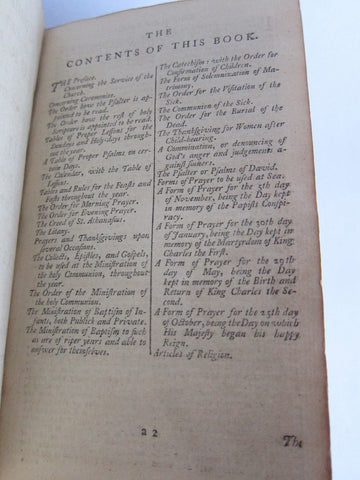 THE
CONTENTS OF THIS BOOK.
THE Preface.
Concerning the Service of the
Church.
Concerning Ceremonies.
The Order how the Psalter is ap-
pointed to be read.
The Order how the rest of holy
Scripture is appointed to be read.
Tables of Proper Lessons for the
Sundays and Holy-days through-
out the year.
A Table of Proper Psalms on cer-
tain Days.
The Calendar, with the Table of
Lessons.
Tables and Rules for the Feasts and
Fasts throughout the year.
The Order for Morning Prayer.
The Order for Evening Prayer.
The Creed of St. Athanasius.
The Litany.
Prayers and Thanksgivings upon
several Occasions.
The Collects, Epistles, and Gospels,
to be used at the Ministration of
the holy Communion, throughout
the year.
The Order of the Ministration of
the holy Communion.
The Ministration of Baptism of In-
fants, both Publick and Private.
The Ministration of Baptism to such
as are of riper years and able to
answer for themselves.
The Catechism; with the Order for
Confirmation of Children.
The Form of Solemnization of Ma-
trimony.
The Order for the Visitation of the
Sick.
The Communion of the Sick.
The Order for the Burial of the
Dead.
The Thanksgiving for Women after
Child-bearing.
A Commination, or denouncing of
God's anger and judgements a-
gainst sinners.
The Psalter or Psalms of David.
Forms of Prayer to be used at Sea.
A Form of Prayer for the 5th day
of November, being the Day kept
in memory of the Papists Conspi-
racy.
A Form of Prayer for the 30th day
of January, being the Day kept in
memory of the Martyrdom of King
Charles the First.
A Form of Prayer for the 29th
day of May, being the Day
kept in memory of the Birth and
Return of King Charles the Se-
cond.
A Form of Prayer for the 25th day
of October, being the Day on which
His Majesty began his happy
Reign.
Articles of Religion.
a 2
The